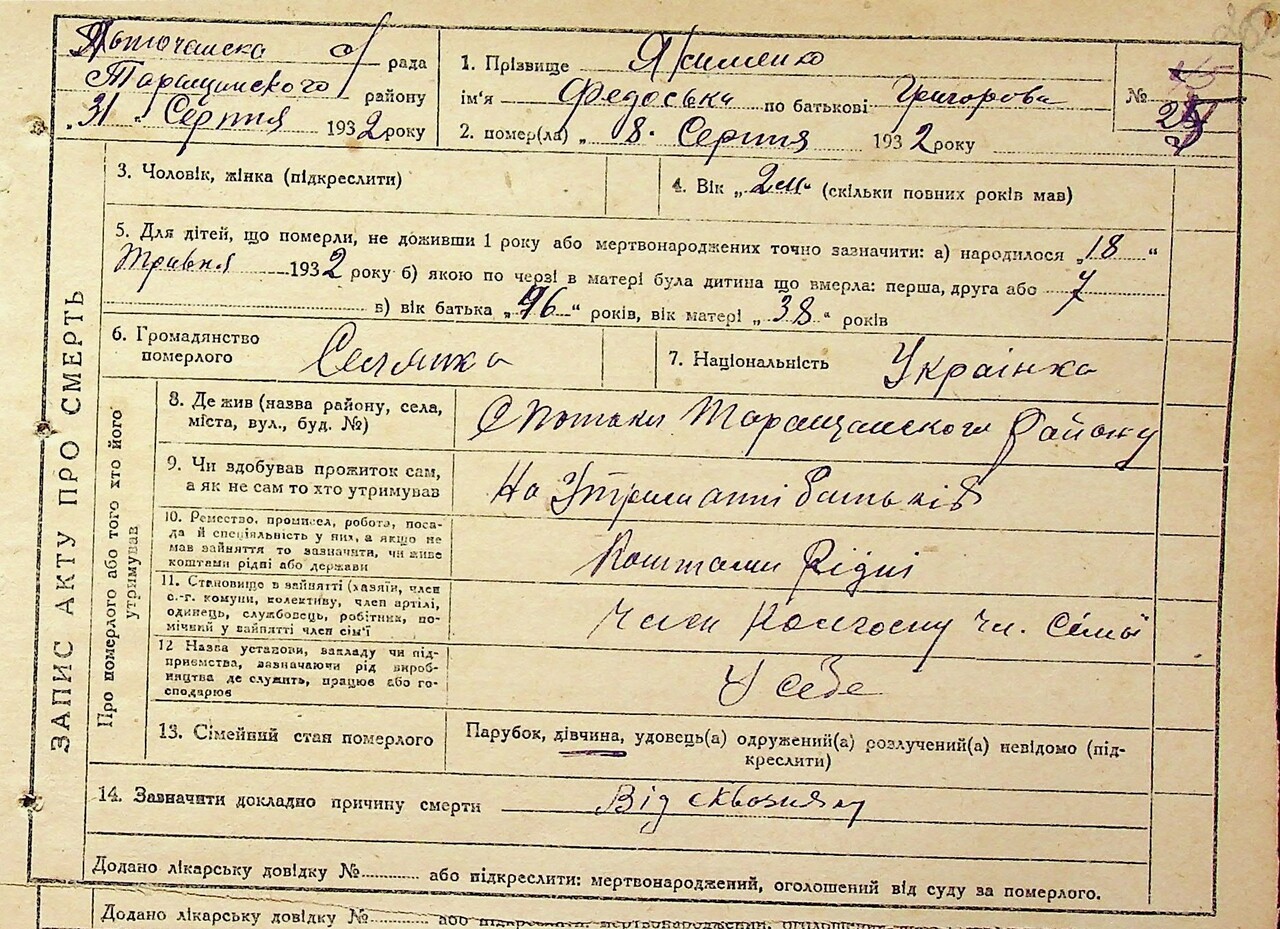 с/ рада
Таращанского району
„31 „ Серпня 1932 року
1. Прізвище Якименко
ім'я Федоська по батькові Григорова
2. помер(ла) „ 8. Серпня 1932 року
№
3. Чоловік, жінка (підкреслити)
4. Вік „2м.“ (скільки повних років мав)
5. Для дітей, що померли, не доживши 1 року або мертвонароджених точно зазначити: а) народилося „18“
Травня 1932 року б) якою по черзі в матері була дитина що вмерла: перша, друга або 7
в) вік батька „ “ років, вік матері „38“ років
6. Громадянство
померлого Селянка
7. Національність Українка
ЗАПИС АКТУ ПРО СМЕРТЬ
Про померлого або того хто його
утримував
8. Де жив (назва району, села,
міста, вул., буд. №)
С Потоки Таращанского Району
9. Чи вдобував прожиток сам,
а як не сам то хто утримував
На Утриманні батьків
10. Ремество, промисел, робота, поса-
да й спеціяльність у них, а якщо не
мав вайняття то зазначити, чи живе
коштами рідні або держави
Коштами Рідні
11. Становище в вайнятті (хазяїн, член
с.-г. комуни, колективу, член артілі,
одинець, службовець, робітник, по-
мічний у вайнятті член сім'ї
Член Колгоспу Чл. Сімьї
12 Назва установи, вакладу чи під-
приємства, вазначаючи рід вироб-
ництва де служить, працює або го-
сподарює
У себе
13. Сімейний стан померлого
Парубок, дівчина, удовець(а) одружений(а) розлучений(а) невідомо (під-
креслити)
14. Зазначити докладно причину смерти Від сквозняку
Додано лікарську довідку № або підкреслити: мертвонароджений, оголошений від суду за померлого.
Додано лікарську довідку № або підкреслити: мертвонароджений, оголошений